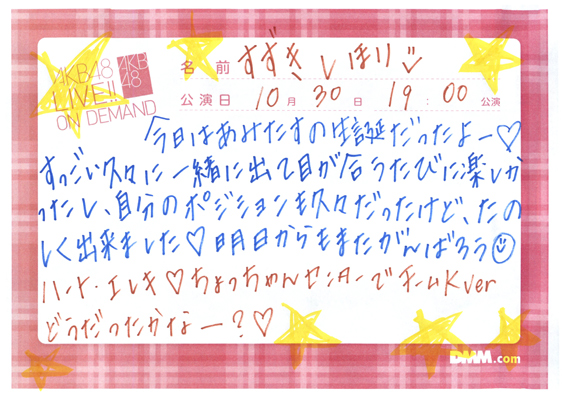 AKB48
LIVE!!
ON DEMAND
AKB
48
名前 すずき しほり
公演日 10月30日 19:00公演
今日はあみたすの生誕だったよー♡
すっごい久々に一緒に出て目が合うたびに楽しか
ったし、自分のポジションも久々だったけど、たの
しく出来ました♡明日からもまたがんばろう☺
ハート・エレキ♡ちょっちゃんセンターでチームKver
どうだったかなー?♡
DMM.com